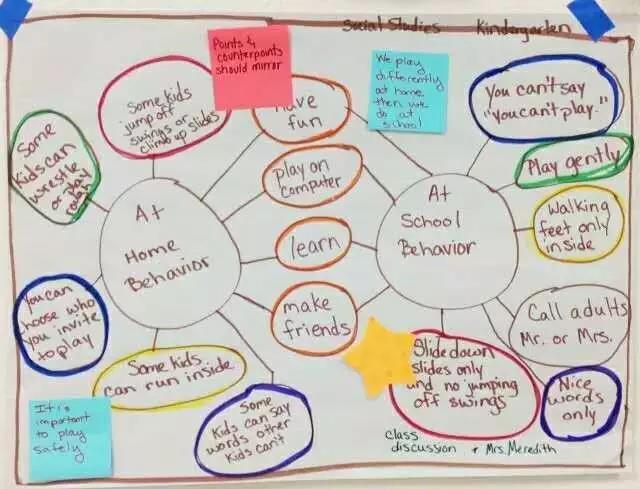 Social Studies Kindergarten
Points &
counterpoints
should mirror
We play
differently
at home
then we
do at
school
Some kids
jump off
swings or
climb up slides
Some
kids can
wrestle
or play
rough
At
Home
Behavior
You can
choose who
you invite
to play
Some kids
can run inside
Some
kids can say
words other
kids can't
It is
important
to play
safely
have
fun
play on
computer
learn
make
friends
At
School
Behavior
You can't say
"you can't play."
Play gently
Walking
feet only
inside
Call adults
Mr. or Mrs.
Nice
words
only
Slide down
slides only
and no jumping
off swings
class
discussion + Mrs. Meredith